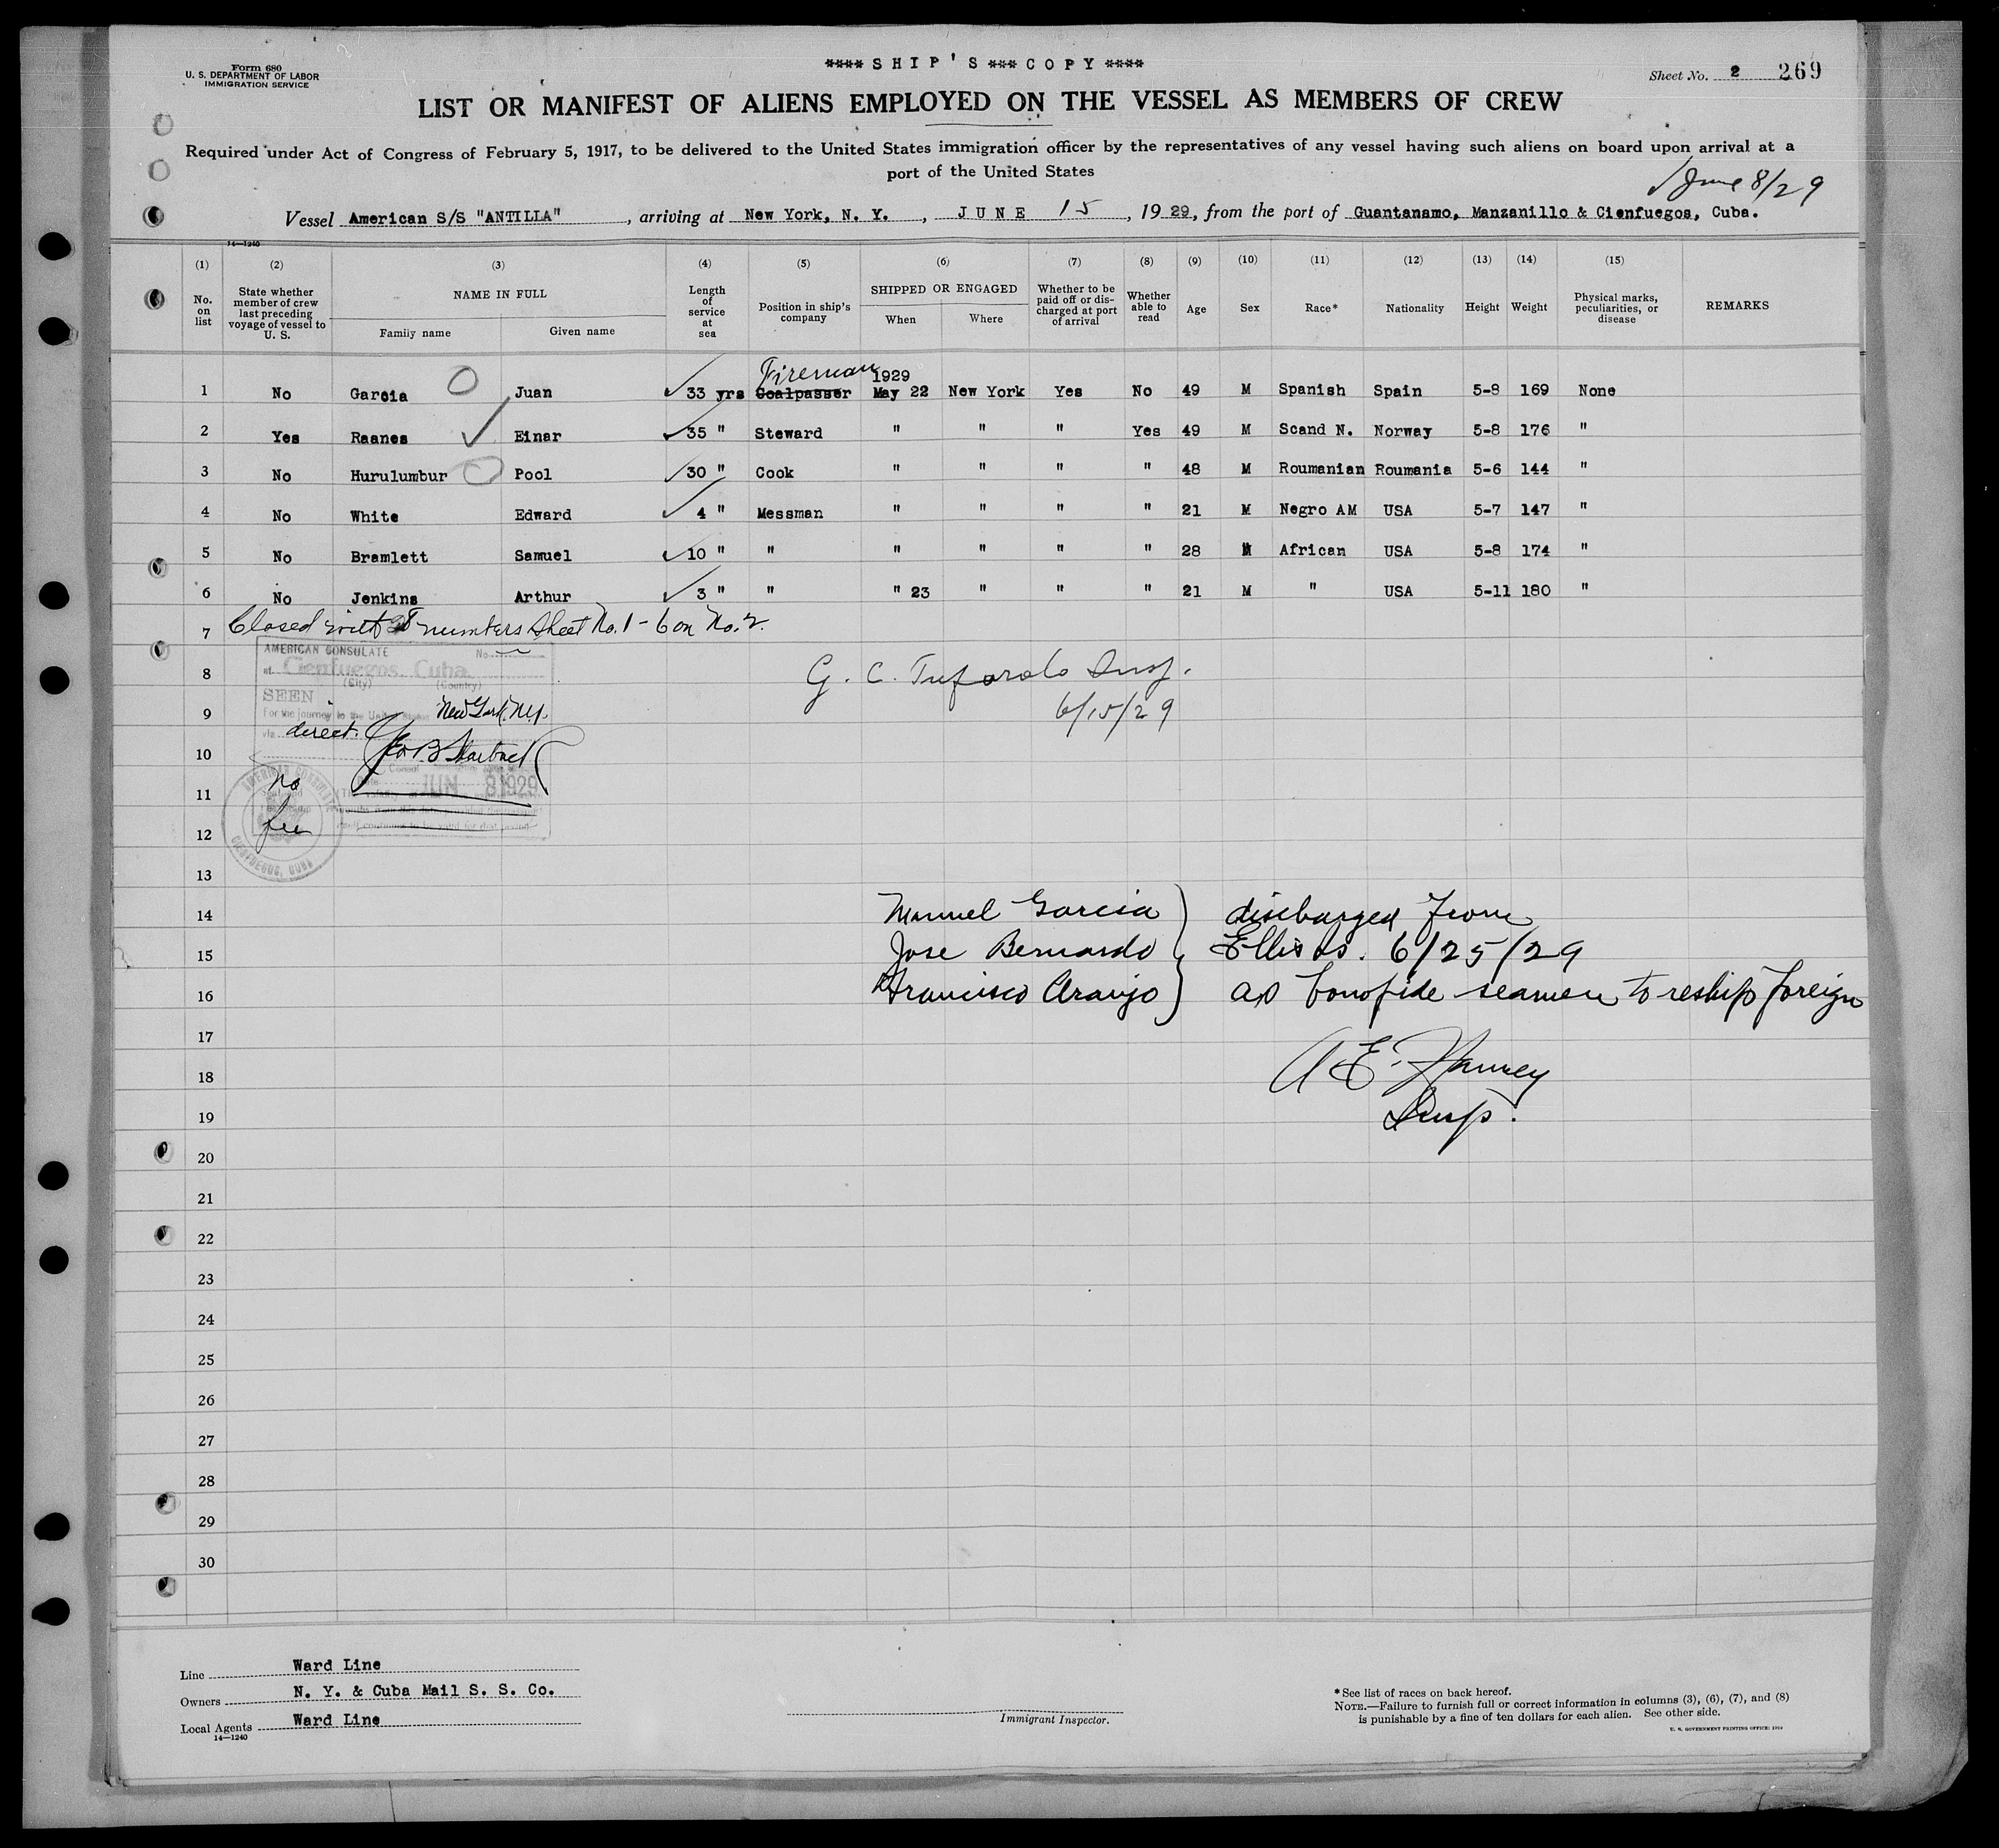 Form 680
U. S. DEPARTMENT OF LABOR
IMMIGRATION SERVICE
**** S H I P ' S *** C O P Y ****
Sheet No. 2 269
LIST OR MANIFEST OF ALIENS EMPLOYED ON THE VESSEL AS MEMBERS OF CREW
Required under Act of Congress of February 5, 1917, to be delivered to the United States immigration officer by the representatives of any vessel having such aliens on board upon arrival at a
port of the United States
June 8/29
Vessel American S/S "ANTILLA", arriving at New York, N. Y., JUNE 15, 1929, from the port of Guantanamo, Manzanillo & Cienfuegos, Cuba.
14—1240
(1) (2) (3) (4) (5) (6) (7) (8) (9) (10) (11) (12) (13) (14) (15)
No. on list State whether member of crew last preceding voyage of vessel to U. S. NAME IN FULL Family name Given name Length of service at sea Position in ship's company SHIPPED OR ENGAGED When Where Whether to be paid off or discharged at port of arrival Whether able to read Age Sex Race* Nationality Height Weight Physical marks, peculiarities, or disease REMARKS
Fireman 1929
1 No Garcia Juan 33 yrs Coalpasser May 22 New York Yes No 49 M Spanish Spain 5-8 169 None
2 Yes Raanes Einar 35 " Steward " " " Yes 49 M Scand N. Norway 5-8 176 "
3 No Hurulumbur Pool 30 " Cook " " " " 48 M Roumanian Roumania 5-6 144 "
4 No White Edward 4 " Messman " " " " 21 M Negro AM USA 5-7 147 "
5 No Bramlett Samuel 10 " " " " " " 28 M African USA 5-8 174 "
6 No Jenkins Arthur 3 " " " 23 " " " 21 M " USA 5-11 180 "
7 Closed with numbers Sheet No. 1 - 6 on No. 2.
AMERICAN CONSULATE No.
8 at Cienfuegos, Cuba. G. C. Insp.
(City) (Country)
SEEN
9 For the journey to the United States New York, N.Y. 6/15/29
via direct.
10
Consul
11 no JUN 8 1929
12 fee
AMERICAN CONSULATE CIENFUEGOS, CUBA
13
14 Manuel Garcia } discharged from
15 Jose Bernardo } Ellis Is. 6/25/29
16 Francisco Araujo } as bonafide seamen to reship foreign
17
18 A E.
19 Insp.
20
21
22
23
24
25
26
27
28
29
30
Line Ward Line
Owners N. Y. & Cuba Mail S. S. Co.
Local Agents Ward Line
14—1240
Immigrant Inspector.
* See list of races on back hereof.
NOTE.—Failure to furnish full or correct information in columns (3), (6), (7), and (8)
is punishable by a fine of ten dollars for each alien. See other side.